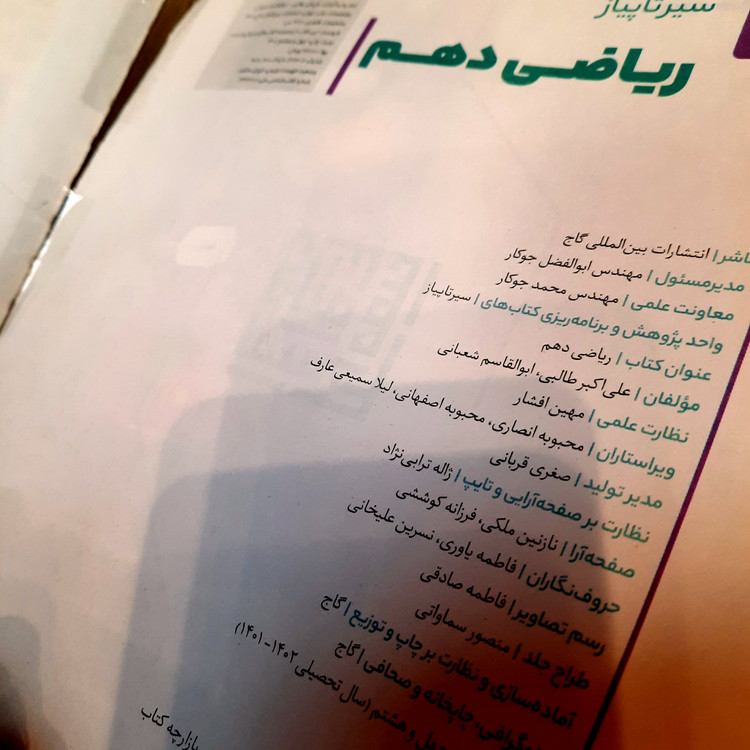 سیرتاپیاز
ریاضی دهم
ناشر | انتشارات بین‌المللی گاج
مدیرمسئول | مهندس ابوالفضل جوکار
معاونت علمی | مهندس محمد جوکار
واحد پژوهش و برنامه‌ریزی کتاب‌های | سیرتاپیاز
عنوان کتاب | ریاضی دهم
مؤلفان | علی‌اکبر طالبی، ابوالقاسم شعبانی
نظارت علمی | مهین افشار
ویراستاران | محبوبه انصاری، محبوبه اصفهانی، لیلا سمیعی‌عارف
مدیر تولید | صغری قربانی
نظارت بر صفحه‌آرایی و تایپ | ژاله ترابی‌نژاد
صفحه‌آرا | نازنین ملکی، فرزانه کوششی
حروف‌نگاران | فاطمه یاوری، نسرین علیخانی
رسم تصاویر | فاطمه صادقی
طراح جلد | منصور سماواتی
آماده‌سازی و نظارت بر چاپ و توزیع | گاج
چاپخانه و صحافی | گاج
و هشتم (سال تحصیلی ۱۴۰۲-۱۴۰۱)
بازارچه کتاب